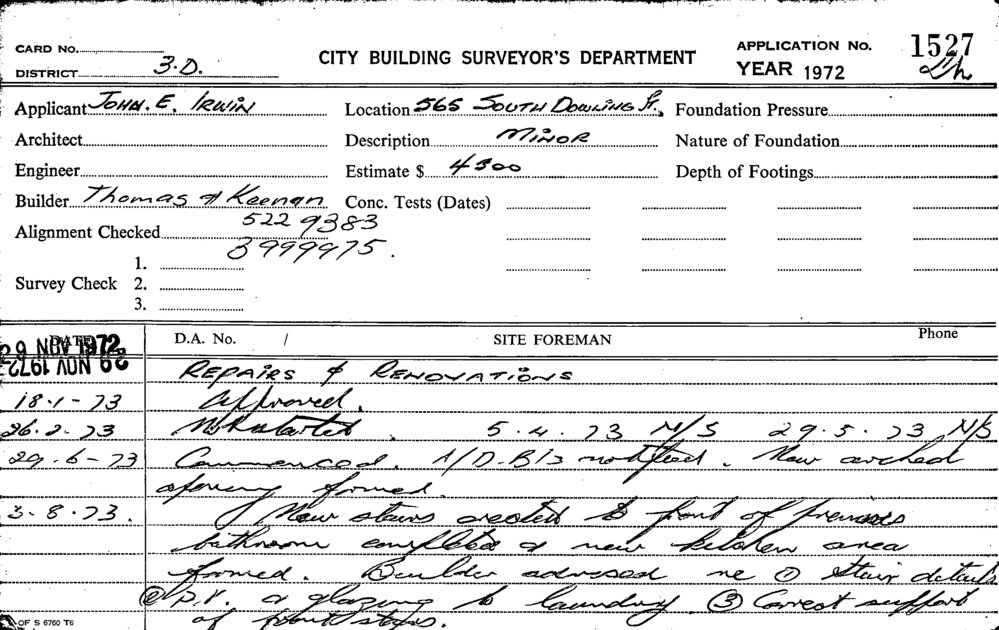 CARD No.
DISTRICT 3.D.
CITY BUILDING SURVEYOR'S DEPARTMENT
APPLICATION No. 1527
YEAR 1972
Applicant John. E. Irwin
Location 565 South Dowling St.,
Foundation Pressure
Architect
Description Minor
Nature of Foundation
Engineer
Estimate $ 4300
Depth of Footings
Builder Thomas & Keenan
Conc. Tests (Dates)
522 9383
Alignment Checked
3999975.
1.
Survey Check 2.
3.
DATE D.A. No. / SITE FOREMAN Phone
29 NOV 1972
29 NOV 1972
Repairs & Renovations
18.1-73 Approved.
26.2.73 Not started. 5.4.73 N/S 29.5.73 N/S
29.6-73 Commenced. notified. New arched
opening formed.
3.8.73. New stairs erected to front of premises
bathroom completed & new kitchen area
formed. Builder advised re ① Stair details
② P.V. & glazing to laundry ③ Correct support
of front stairs.
OF S 6760 T6